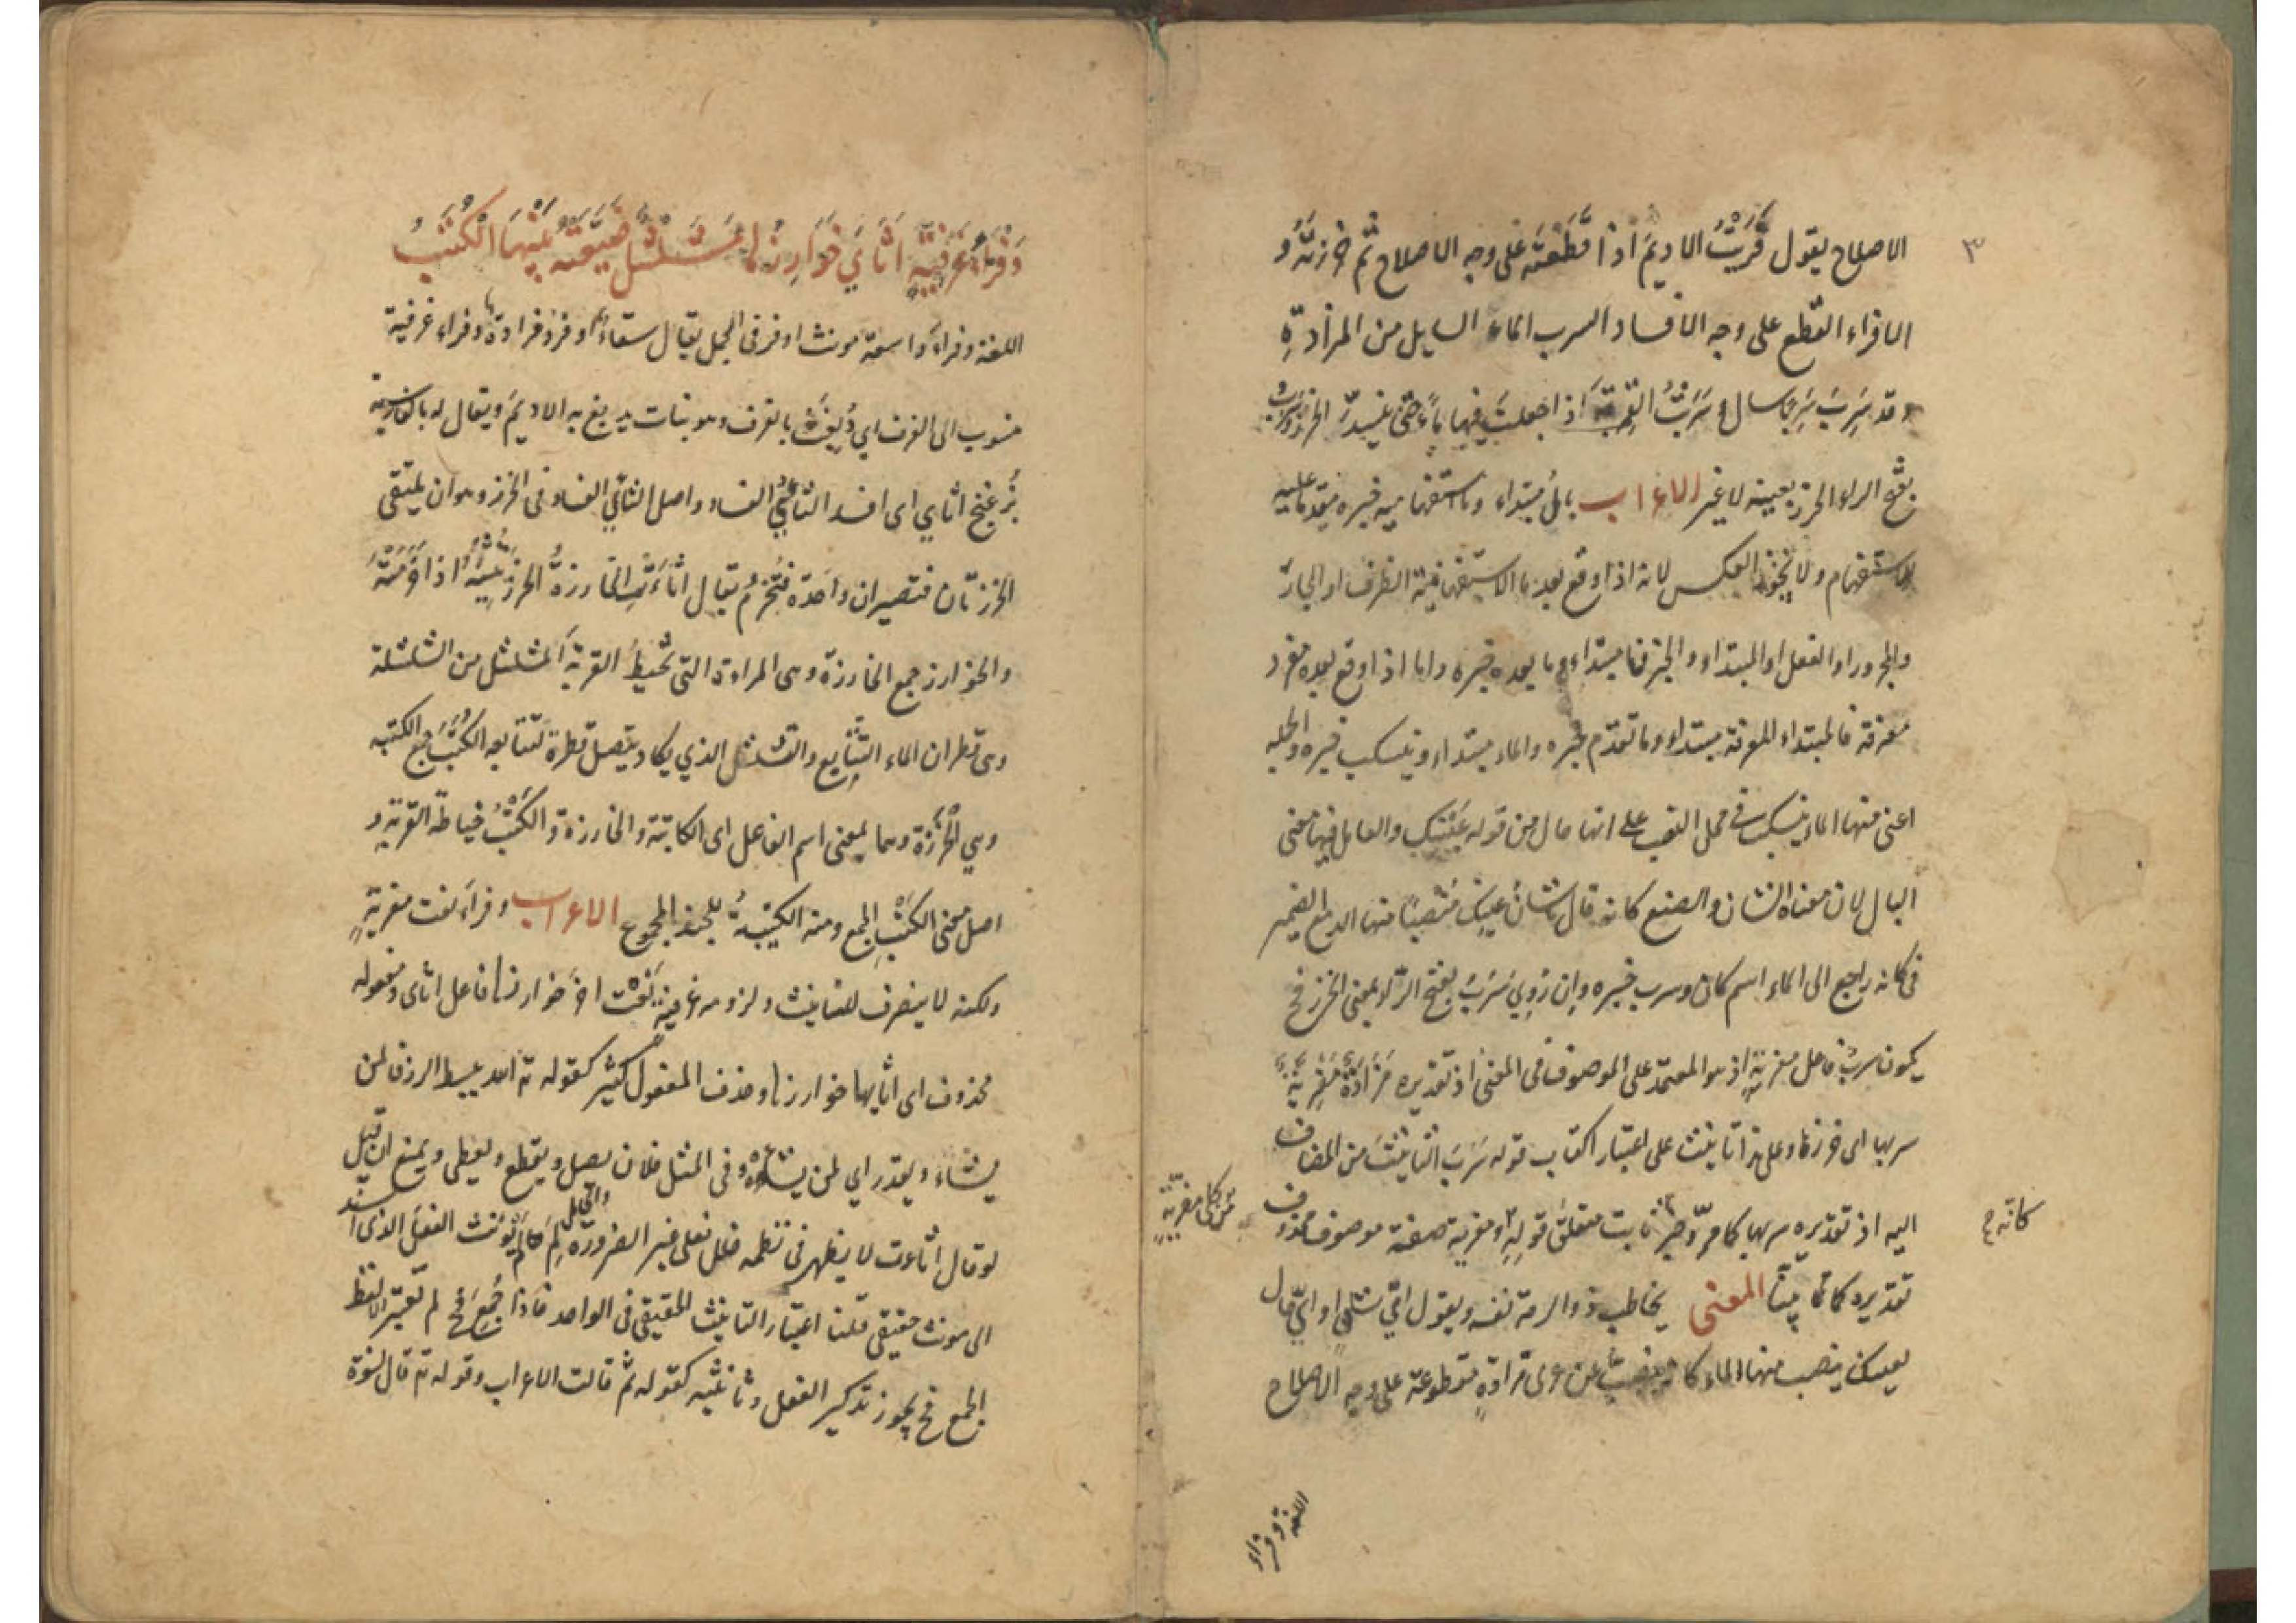 ٣
الاصلاح يقول فَرَيْتُ الاديمَ اذا قَطَعْتَه على وجه الاصلاح ثم خرزتَه و
الافراء القطع على وجه الافساد السرب الماء السايل من المزادةِ
وقد سَرِبَ سَرَبًا سال و سَرَّبْتُ القِربَةَ اذا جعلتَ فيها ماءً حتى ينسدّ الخرز وسَرَبٌ
بفتح الراء الخرز بعينه لا غير الاعراب بالُ مبتداء وما استفهاميه خبره مقدما عليه
للاستفهام ولا يجوز العكس لانه اذا وقع بعد ما الاستفهامية الظرف او الجارّ
والمجرور او الفعل او المبتداء والخبر فما مبتداء وما بعده خبره واما اذا وقع بعده مفرد
معرفة فالمبتداء المعرفة مبتداء وما تقدم خبره والماء مبتداء وينسكب خبره والجمله
اعنى منها الماء ينسكب فى محل النصب على انها حال من قوله عينك والعامل فيها معنى
البال لان معناه الشان والصنع كانه قال ما شأنُ عينِك مُنْصَبًّا منها الدمع الضمير
فى كانه راجع الى الماء اسم كان وسرب خبره وان رُوِيَ سَرَبُ بفتح الرّاء بمعنى الخرز فح
يكون سربُ فاعل مفريةٍ اذ هو المعتمد على الموصوف فى المعنى اذ تقديره مَزَادَةٌ مَفْرِيَّةٌ
سربها اى خرزها وعلى هذا تانيث على اعتبار اكتساب قوله سَرَبَ التانيثَ من المضاف
اليه اذ تقديره سربها كما مرّ ثابت متعلق قوله ومفرية صفة موصوف محذوف
كانه
من كلى مفريةٍ
تقديره كما بيّنّا المعنى يخاطب ذو الرمة نفسه ويقول ايّ شئٍ او ايّ حال
بعينك ينصب منها الماء كانه ينصبّ من عرى مزادةٍ مقطوعة على وجه الاصلاح
اللغة وفراء
وَفْرَاءَ غَرْفِيَّةٍ اَثْأَي خَوَارِزُهَا مُشَلْشَلٌ ضَيَّعَتْهُ بَيْنَهَا الْكُتَبُ
اللغة وفراءَ واسعة مونث اوفر فى المجمل يقال سقاء اوفر ومزادة وفراء غرفية
منسوب الى الغرف اى دُبِغَتْ بالغرف وهو بنات يدبغ به الاديمَ ويقال له بالفارسية
بُزغنج اثاي اى افسد الثأي الفساد واصل الثأي الفساد فى الخرز وهو ان يلتقى
الخرزتان فتصيران واحدة فتَخَرُم يقال اثأَتِ الخارزةُ الخرز تثئيه اذا خَرَمَتْهُ
والخوارز جمع الخارزة وهى المراءة التى تخيطُ القربة المشلشل من الشلشلة
وهى قطران الماء المتتابع والمشلشل الذي يكاد يتصل قطرة لتتابعه الكُتَبُ جمع الكتبه
وهي الخُرْزَة وهما بمعنى اسم الفاعل اى الكاتبة والخارزة والكَتْبُ خياطة القربة و
اصل معنى الكَتْبِ الجمع ومنه الكتيبةُ للجند المجموع الاعراب وفراءَ نعت مفريةٍ
ولكنه لا ينصرف للتانيث ولزومه غرفيةٍ نعت اخر خوارزها فاعل اثاى ومفعوله
محذوف اى اثايها خوارزها وحذف المفعول كثير كقوله تع الله يبسط الرزق لمن
يشاء ويقدر اي لمن يشاءه وفى المثل فلان يصل ويقطع ويعطى ويمنع ان قيل
لو قال اثاءت لا يظهر فى نظمه خلل فعلى غير الضرورة لِمَ لَمْ يُؤنث الفعلَ الذى اُسند
الى مونث حقيقى قلنا اعتبار التانيث الحقيقى فى الواحد فاذا جُمِعَ فح لم تعتبر الا لفظ
الجمع فح يجوز تذكير الفعل وتانيثه كقوله ثم قالت الاعراب وقوله تع قال نسوة